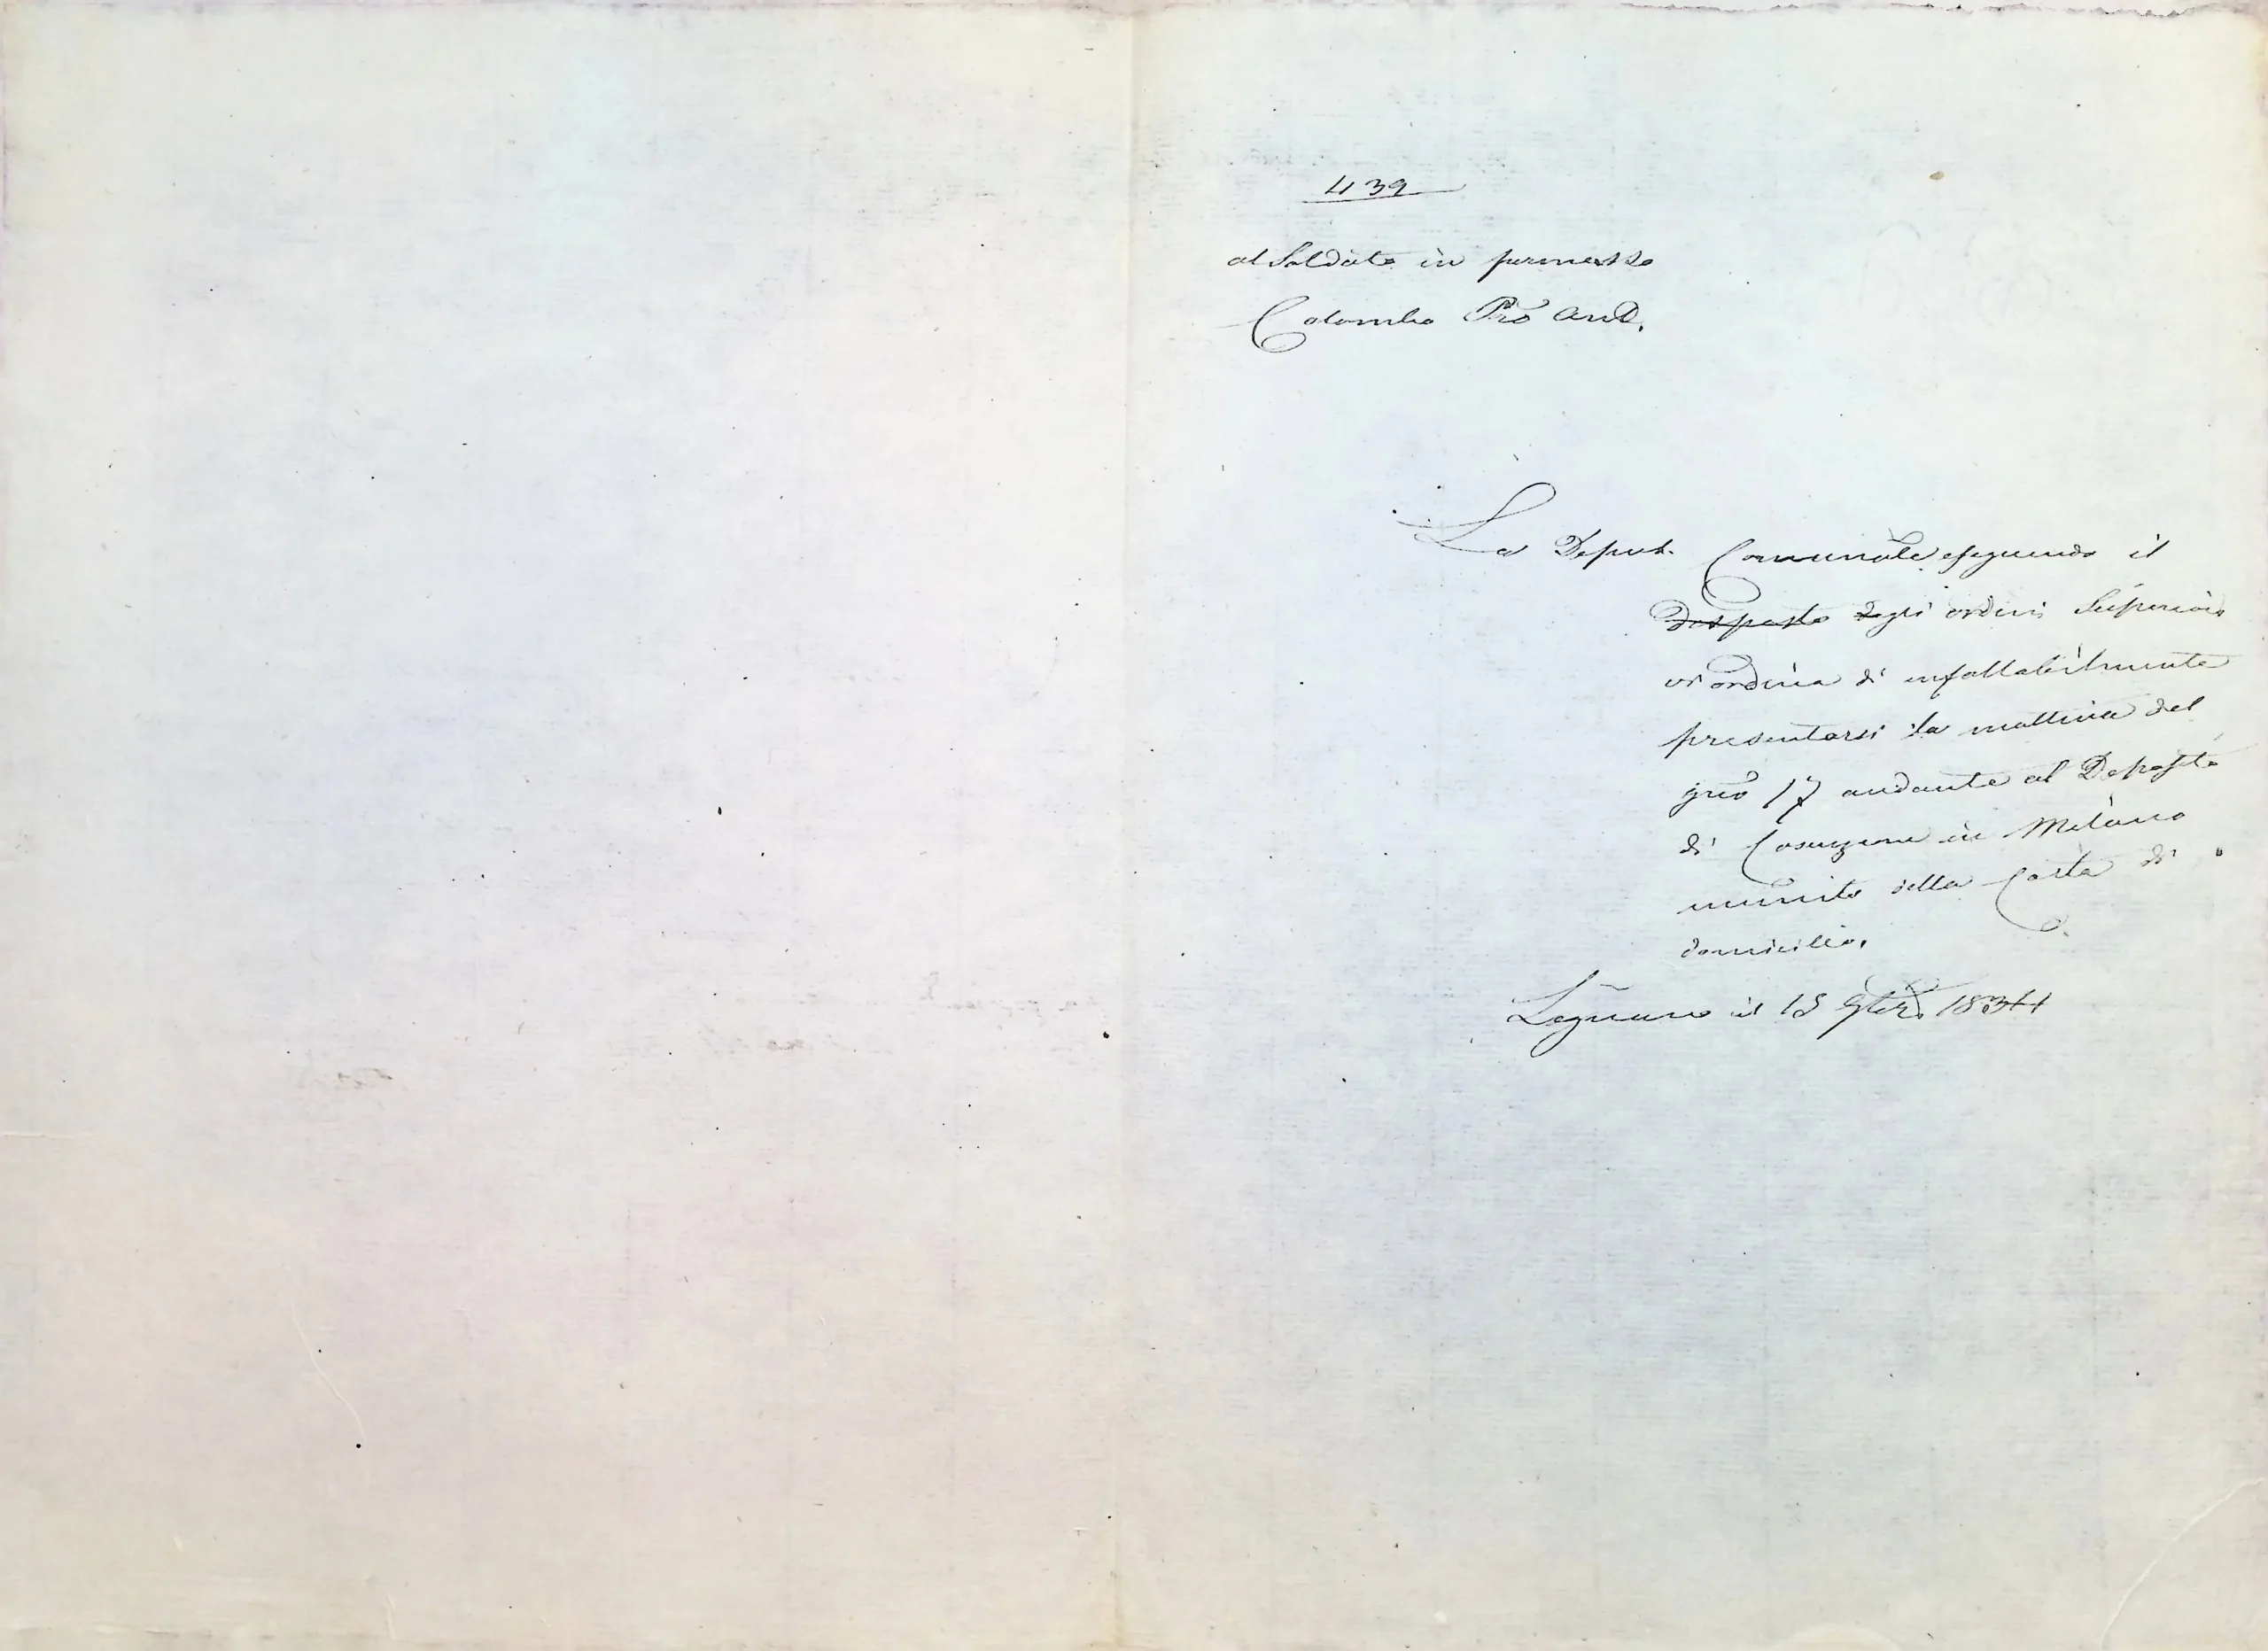 439
al Soldato in permesso
Colombo Pro And.
La Deput. Comunale eseguendo il
disposto degli ordini Superiori
vi ordina di infallabilmente
presentarsi la mattina del
gno 17 andante al Deposito
di Coscrizione in Milano
munito della Carta di
domicilio.
Legnano il 15 9bre 1834